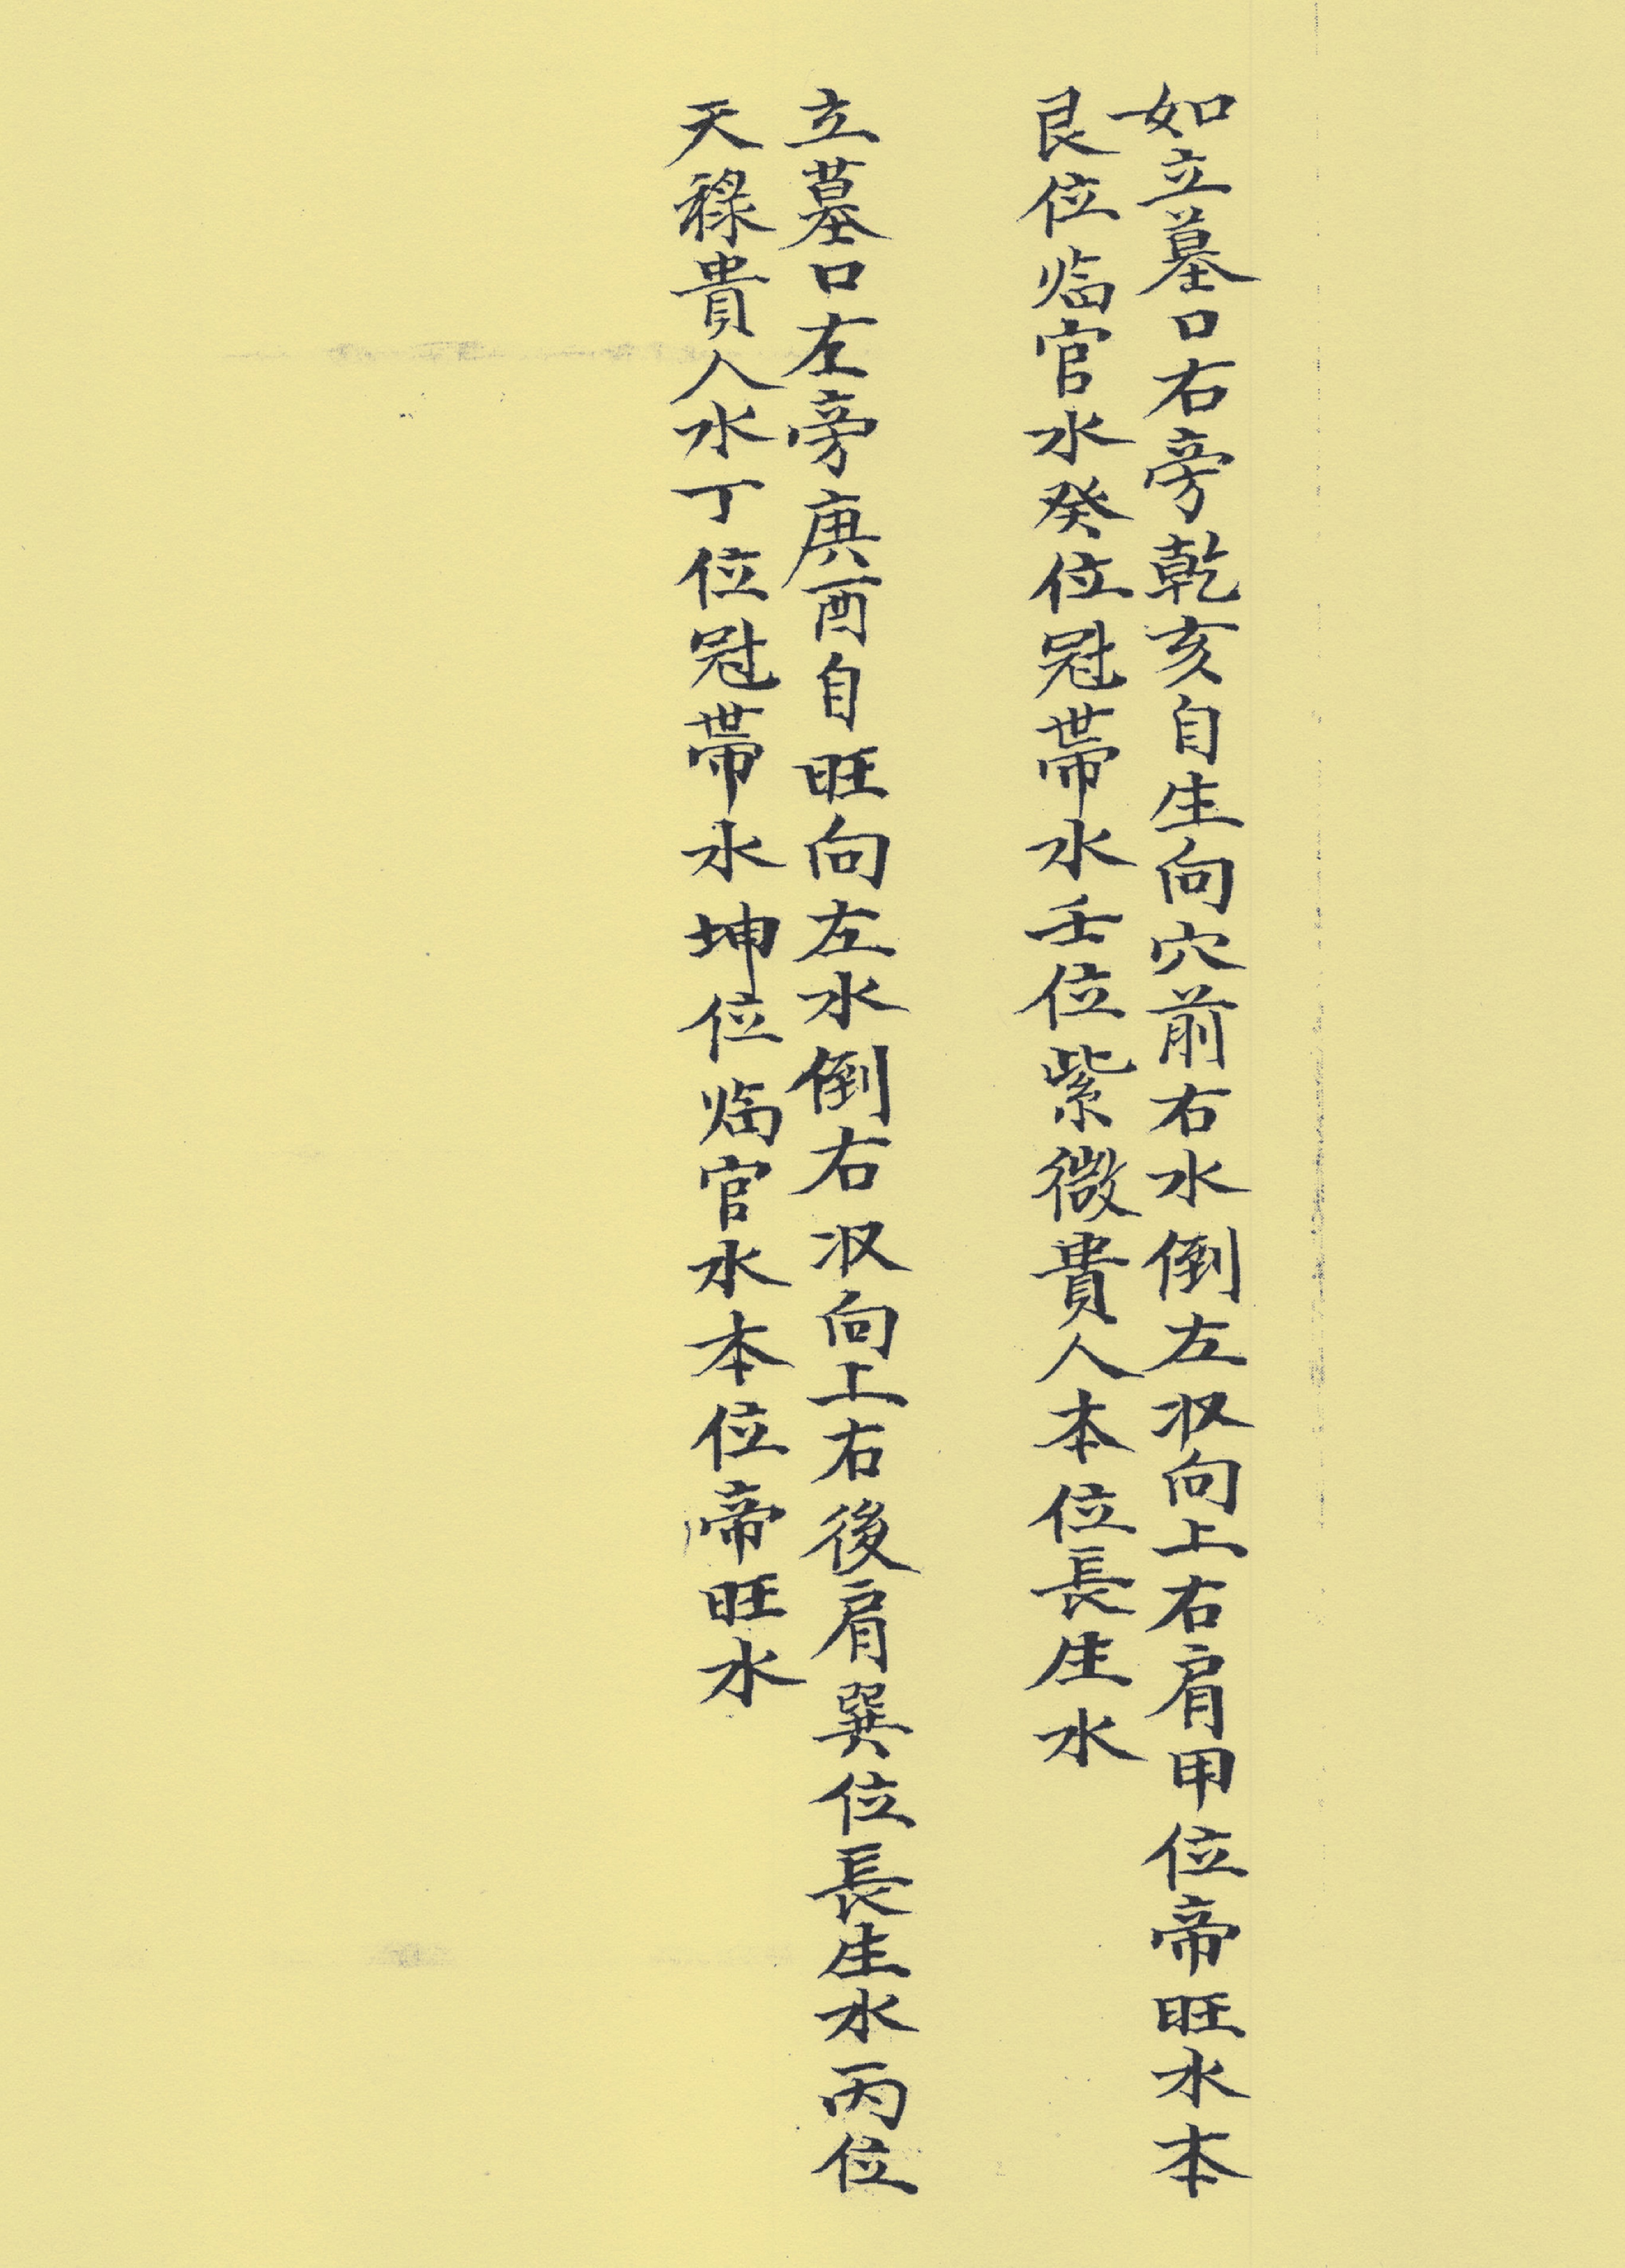 如立墓口右旁乾亥自生向穴前右水倒左収向上右肩甲位帝旺水本
艮位臨官水癸位冠帶水壬位紫微貴人本位長生水
立墓口左旁庚酉自旺向左水倒右収向上右後肩巽位長生水丙位
天祿貴人水丁位冠帶水坤位臨官水本位帝旺水